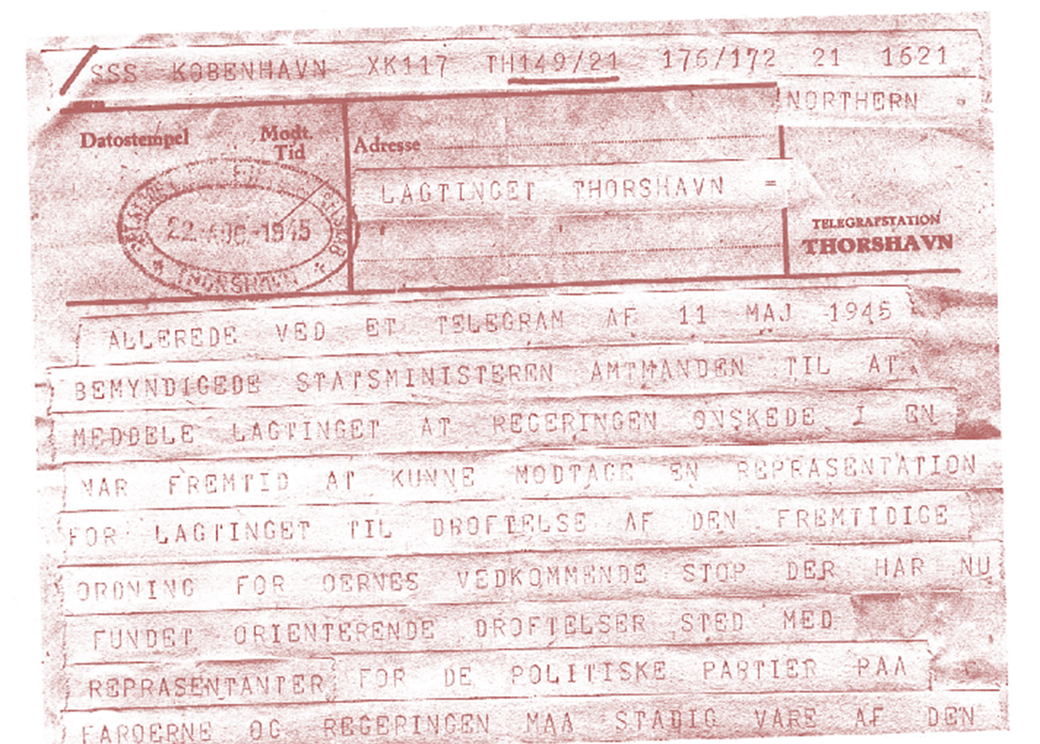 SSS KOBENHAVN XK117 TH149/21 176/172 21 1621
NORTHERN
Datostempel Modt. Tid
Adresse
LAGTINGET THORSHAVN =
22 AUG 1945
THORSHAVN
TELEGRAFSTATION
THORSHAVN
ALLEREDE VED ET TELEGRAM AF 11 MAJ 1945
BEMYNDIGEDE STATSMINISTEREN AMTMANDEN TIL AT
MEDDELE LAGTINGET AT REGERINGEN ONSKEDE I EN
NAR FREMTID AT KUNNE MODTAGE EN REPRASENTATION
FOR LAGTINGET TIL DROFTELSE AF DEN FREMTIDIGE
ORDNING FOR OERNES VEDKOMMENDE STOP DER HAR NU
FUNDET ORIENTERENDE DROFTELSER STED MED
REPRASENTANTER FOR DE POLITISKE PARTIER PAA
FAROERNE OG REGERINGEN MAA STADIG VARE AF DEN